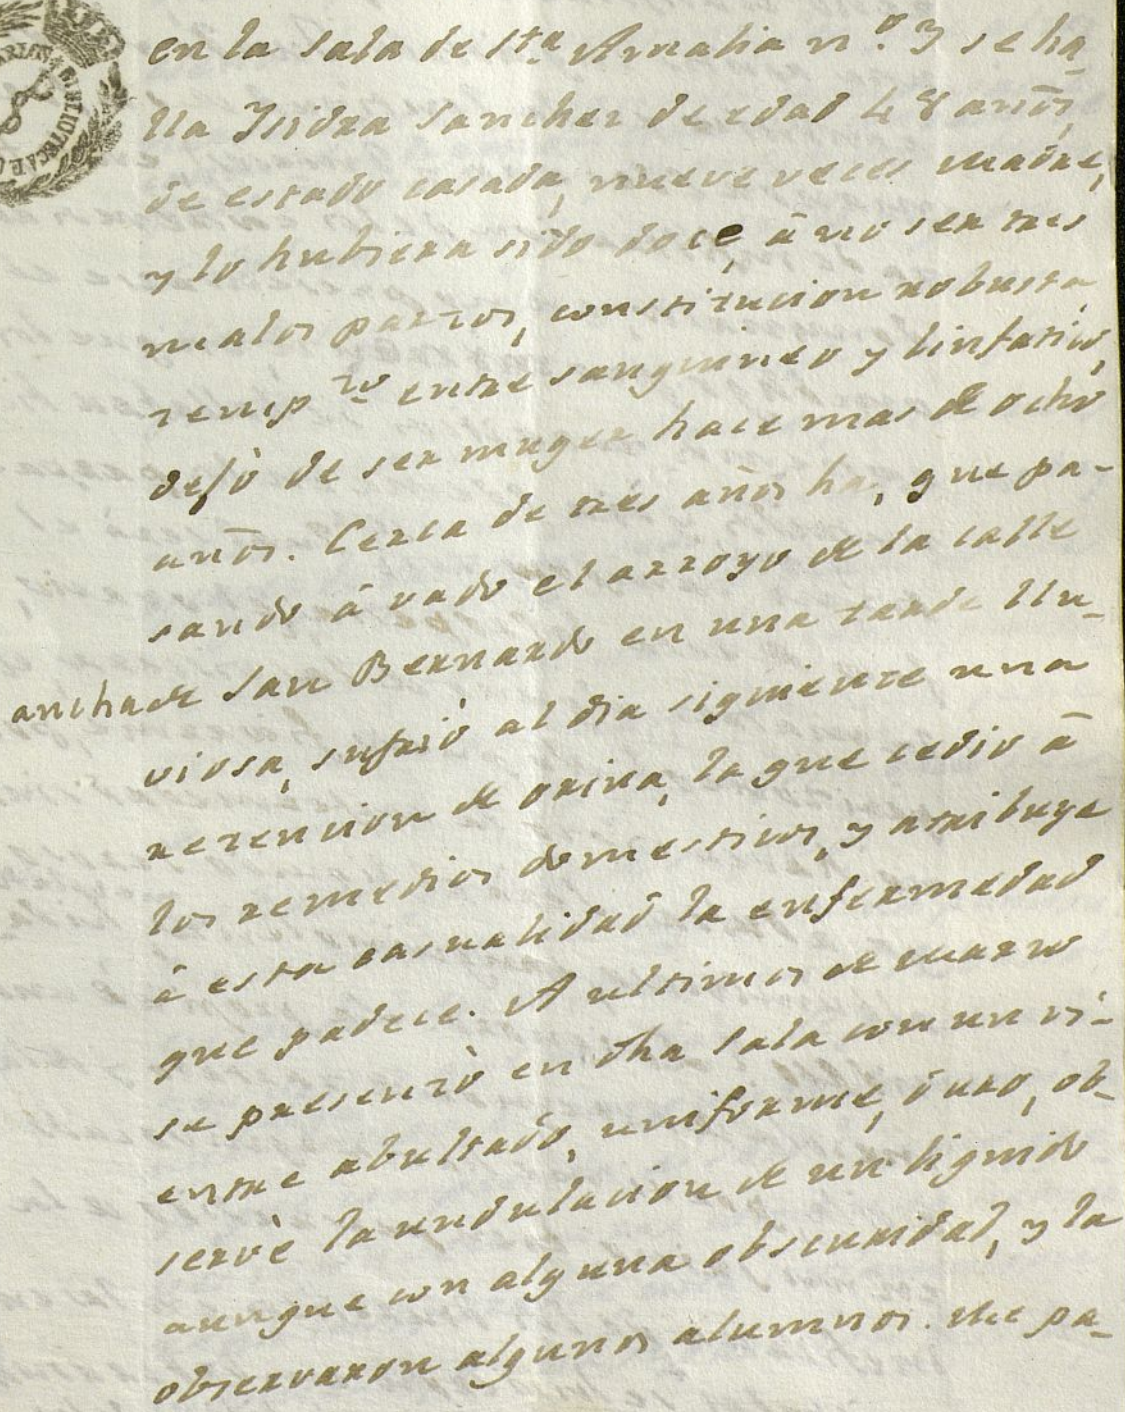 en la sala de Sta. Amalia n.º 3 se ha-
lla Ysidra Sanchez de edad 48 años,
de estado casada, nueve veces madre,
y lo hubiera sido doce, á no ser tres
malos partos, constitucion robusta,
tempto entre sanguineo y linfatico,
dejò de ser muger hace mas de ocho
años. Cerca de tres años ha, que pa-
sando á vado el arroyo de la calle
ancha de San Bernardo en una tarde llu-
viosa, sufriò al dia siguiente una
retencion de orina, la que cedio á
los remedios domesticos, y atribuye
á esta casualidad la enfermedad
que padece. A ultimos de marzo
se presentò en dha sala con un vi-
entre abultado, uniforme, duro, ob-
servè la undulacion de un liquido
aunque con alguna obscuridad, y la
observaron algunos alumnos. Me pa-